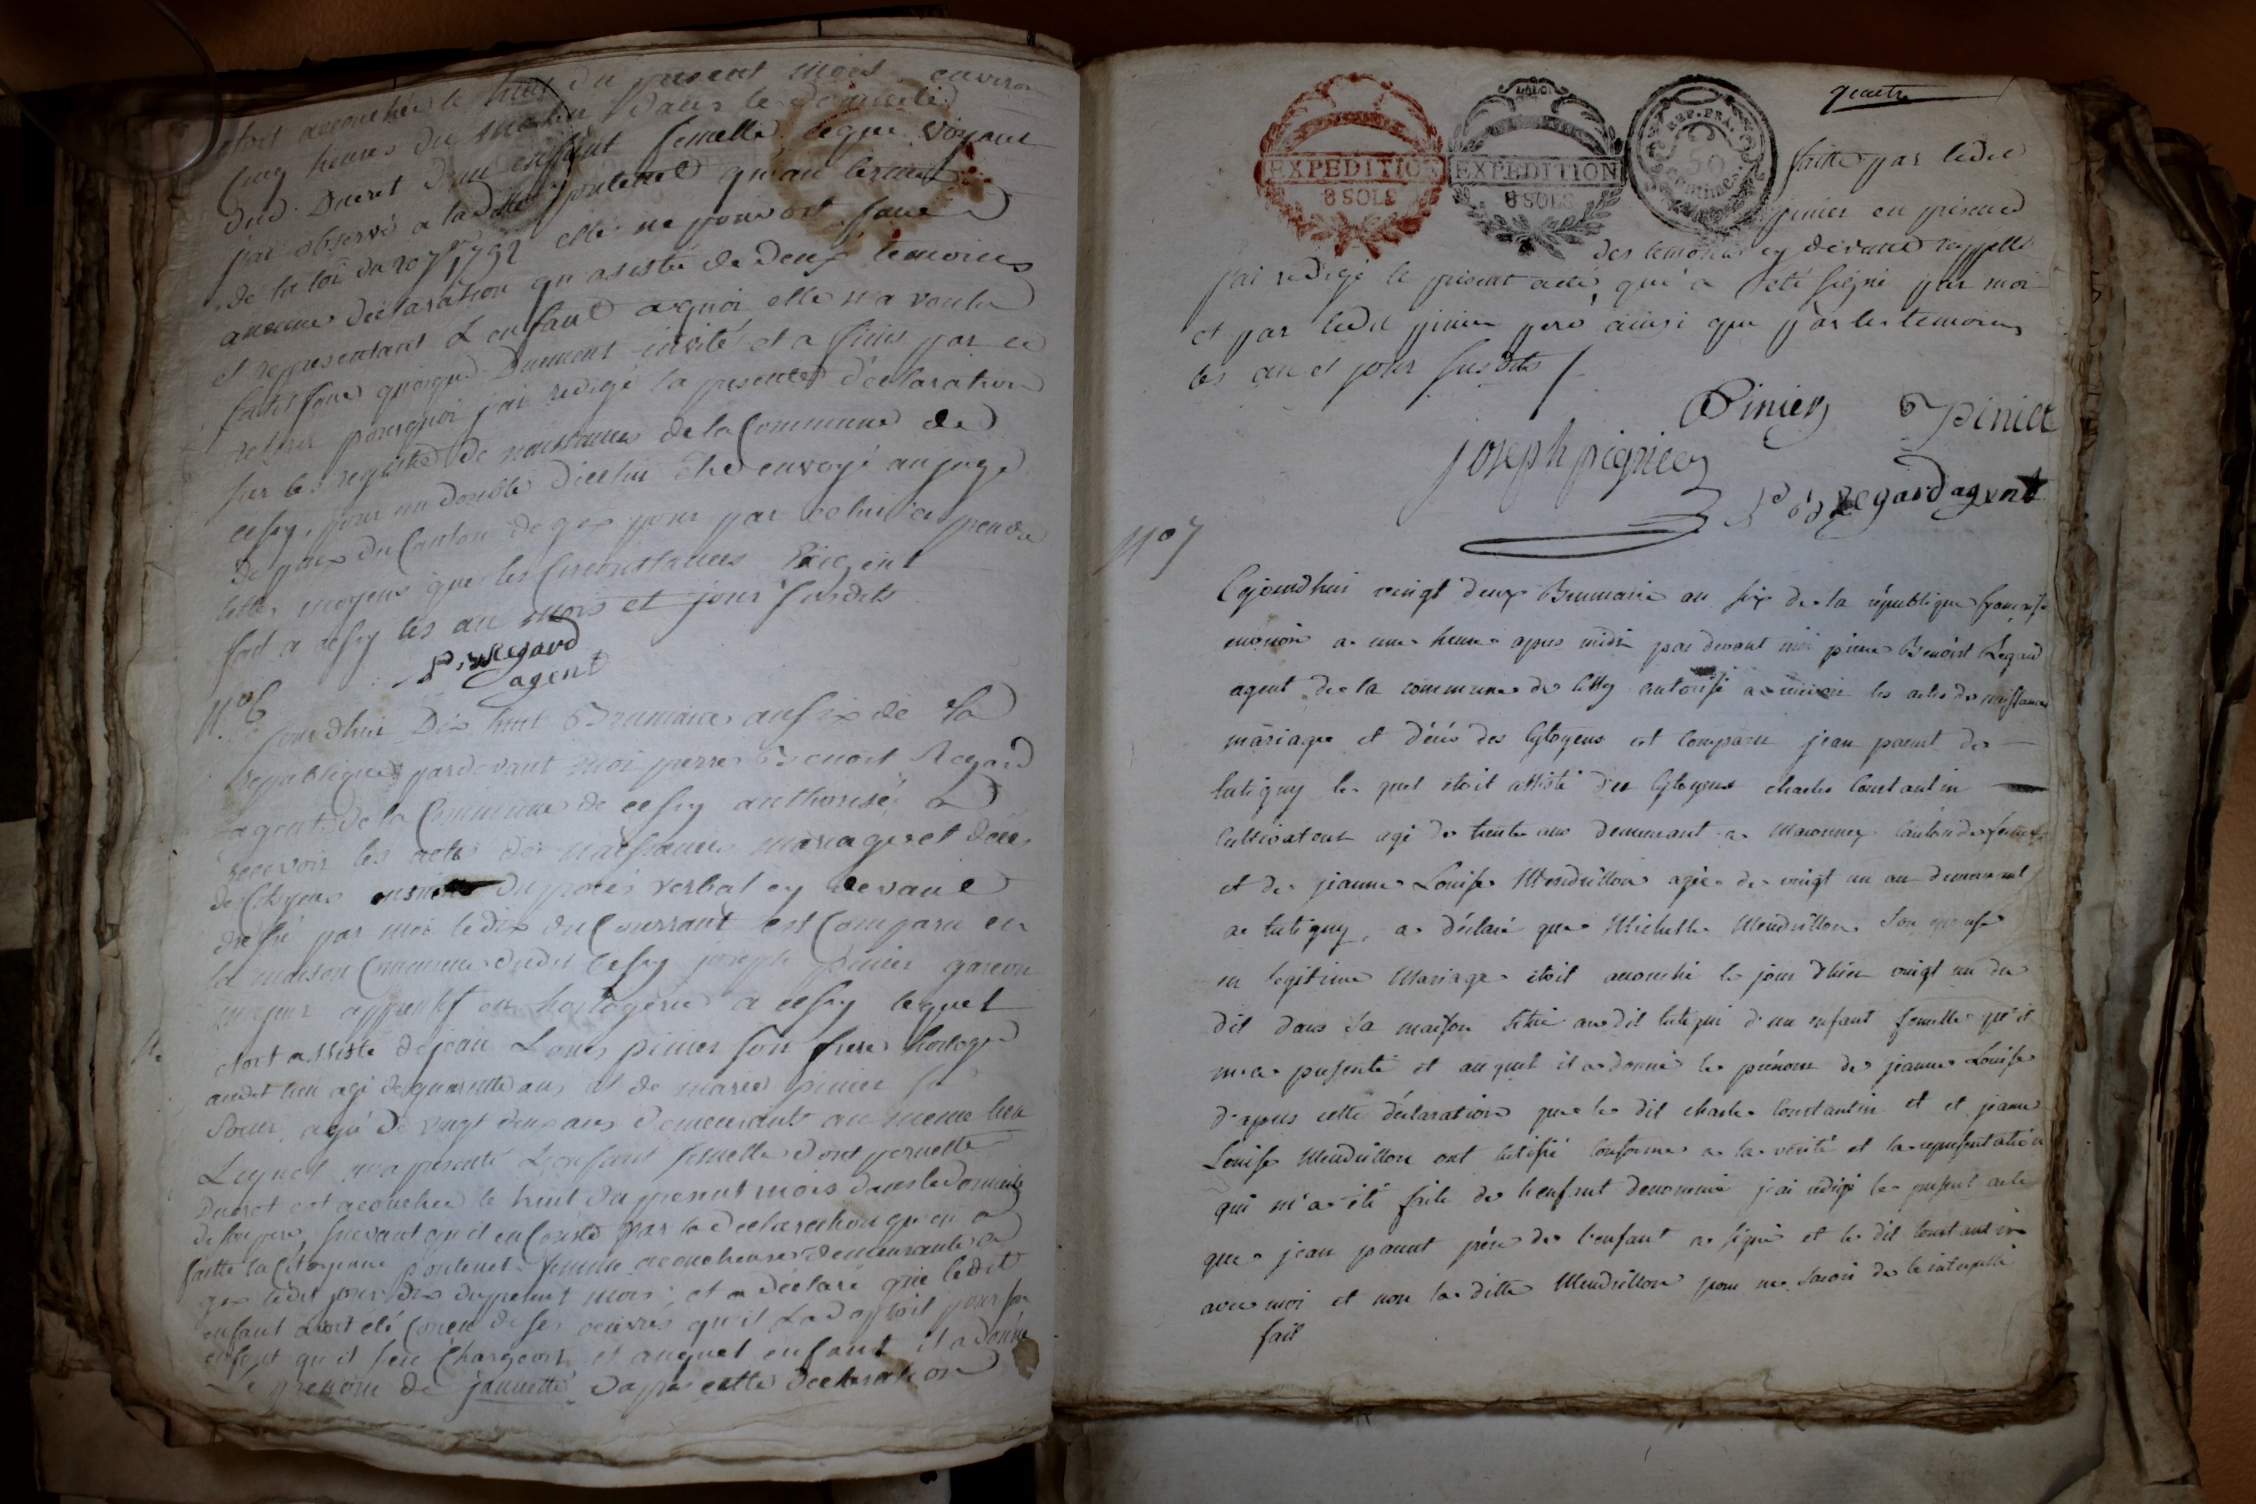 etoit accouchée le huit du present mois environ
cinq heures du matin dans le domicile
dud. Ducret d'un enffant femelle, ce que voyant
j'ai observé a la ditte pontenet qu'au terme
de la loi du 20 7bre 1792 elle ne pouvoit faire
aucune déclaration qu'asistée de deux temoins
et representant L'enfant aquoi elle n'a voulu
satisfaire quoique dument invité et a finis par ce
retirer pourquoi j'ai redigé la presente déclaration
sur les registre de naissances de la Commune de
cessy, pour un double d'icelui etre envoyé au juge
de paix du Canton de gex pour par celui ci prendre
telles moyens que les Circonstances Exigent
fait a cessy les an mois et jour susdits
P. B Regard
agent
N.o 6
Jourdhui Dix huit Brumaire an six de la
republique pardevant moi pierre Benoit Regard
agent de la Commune de cessy authorisé a
recevoir les actes de naissances mariage et décès
de Citoyens ensuite du procés verbal cy devant
dressé par moi le dix du Courrant est Comparu en
la maison Commune dudit Cessy joseph pinier garcon
majeur apprentif en horlogerie a cessy lequel
etoit assisté de jean Louis pinier son frere horloger
audit lieu agé de quarante ans et de marie pinier sa
Soeur agée de vingt deux ans demeurants au meme lieu
Lequel m'a presenté L'enfant femelle dont pernette
Ducret est acouchée le huit du present mois dans le domicile
de son pere, suivant qu'il en Conste par la declaration qu'en a
faitte la Citoyenne pontenet femme acoucheuse demeurante a
gex ledit jour dix du present mois; et a déclaré que ledit
enfant avoit été Conçu de ses oeuvres qu'il L'adoptoit pour son
enfent qu'il s'en Chargeoit et auquel enfant il a donné
Le prenom de jannette, d'apres cette declaration
quatre
EXPEDITION
8 SOLS
EXPEDITION
8 SOLS
REP. FRA.
50
centimes
faitte par ledit
pinier en presence
des temoins cy devant rappellé
j'ai redigé le present acte, qui a été signé par moi
et par ledit pinier pere ainsi que par les temoins
les an et jour susdits /.
Pinier Pinier
joseph pignier
P. B Regard agent
No 7
Cejourdhui vingt deux Brumaire an six de la république française
environ a une heure apres midi par devant moi pierre Benoist Regard
agent de la commune de Cessy autorisé a recevoir les actes de naissance
mariage et décés des Cytoyens est comparu jean paent de
tutigny le quel etoit assisté des Cytoyens charles Constantin
Cultivateur agé de trente ans demeurant a Maconnex Canton de ferney
et de jeanne Louise Mendrillon agée de vingt un an demeurant
a tutigny, a déclaré que Michelle Mendrillon son epouse
en legitime Mariage étoit acouché le jour d'hier vingt un du
dit dans sa maison sitüé au dit tutigni d'un enfant femelle qu'il
m'a présenté et auquel il a donné le prénom de jeanne Louise
d'apres cette déclaration que le dit charle Constantin et et jeanne
Louise Mendrillon ont certifié conforme a la vérité et la représentation
qui m'a été faite de l'enfant denommé j'ai rédigé le présent acte
que jean paent pére de l'enfant a signé et le dit Constantin
avec moi et non la ditte Mendrillon pour ne savoir de ce interpellé
fait